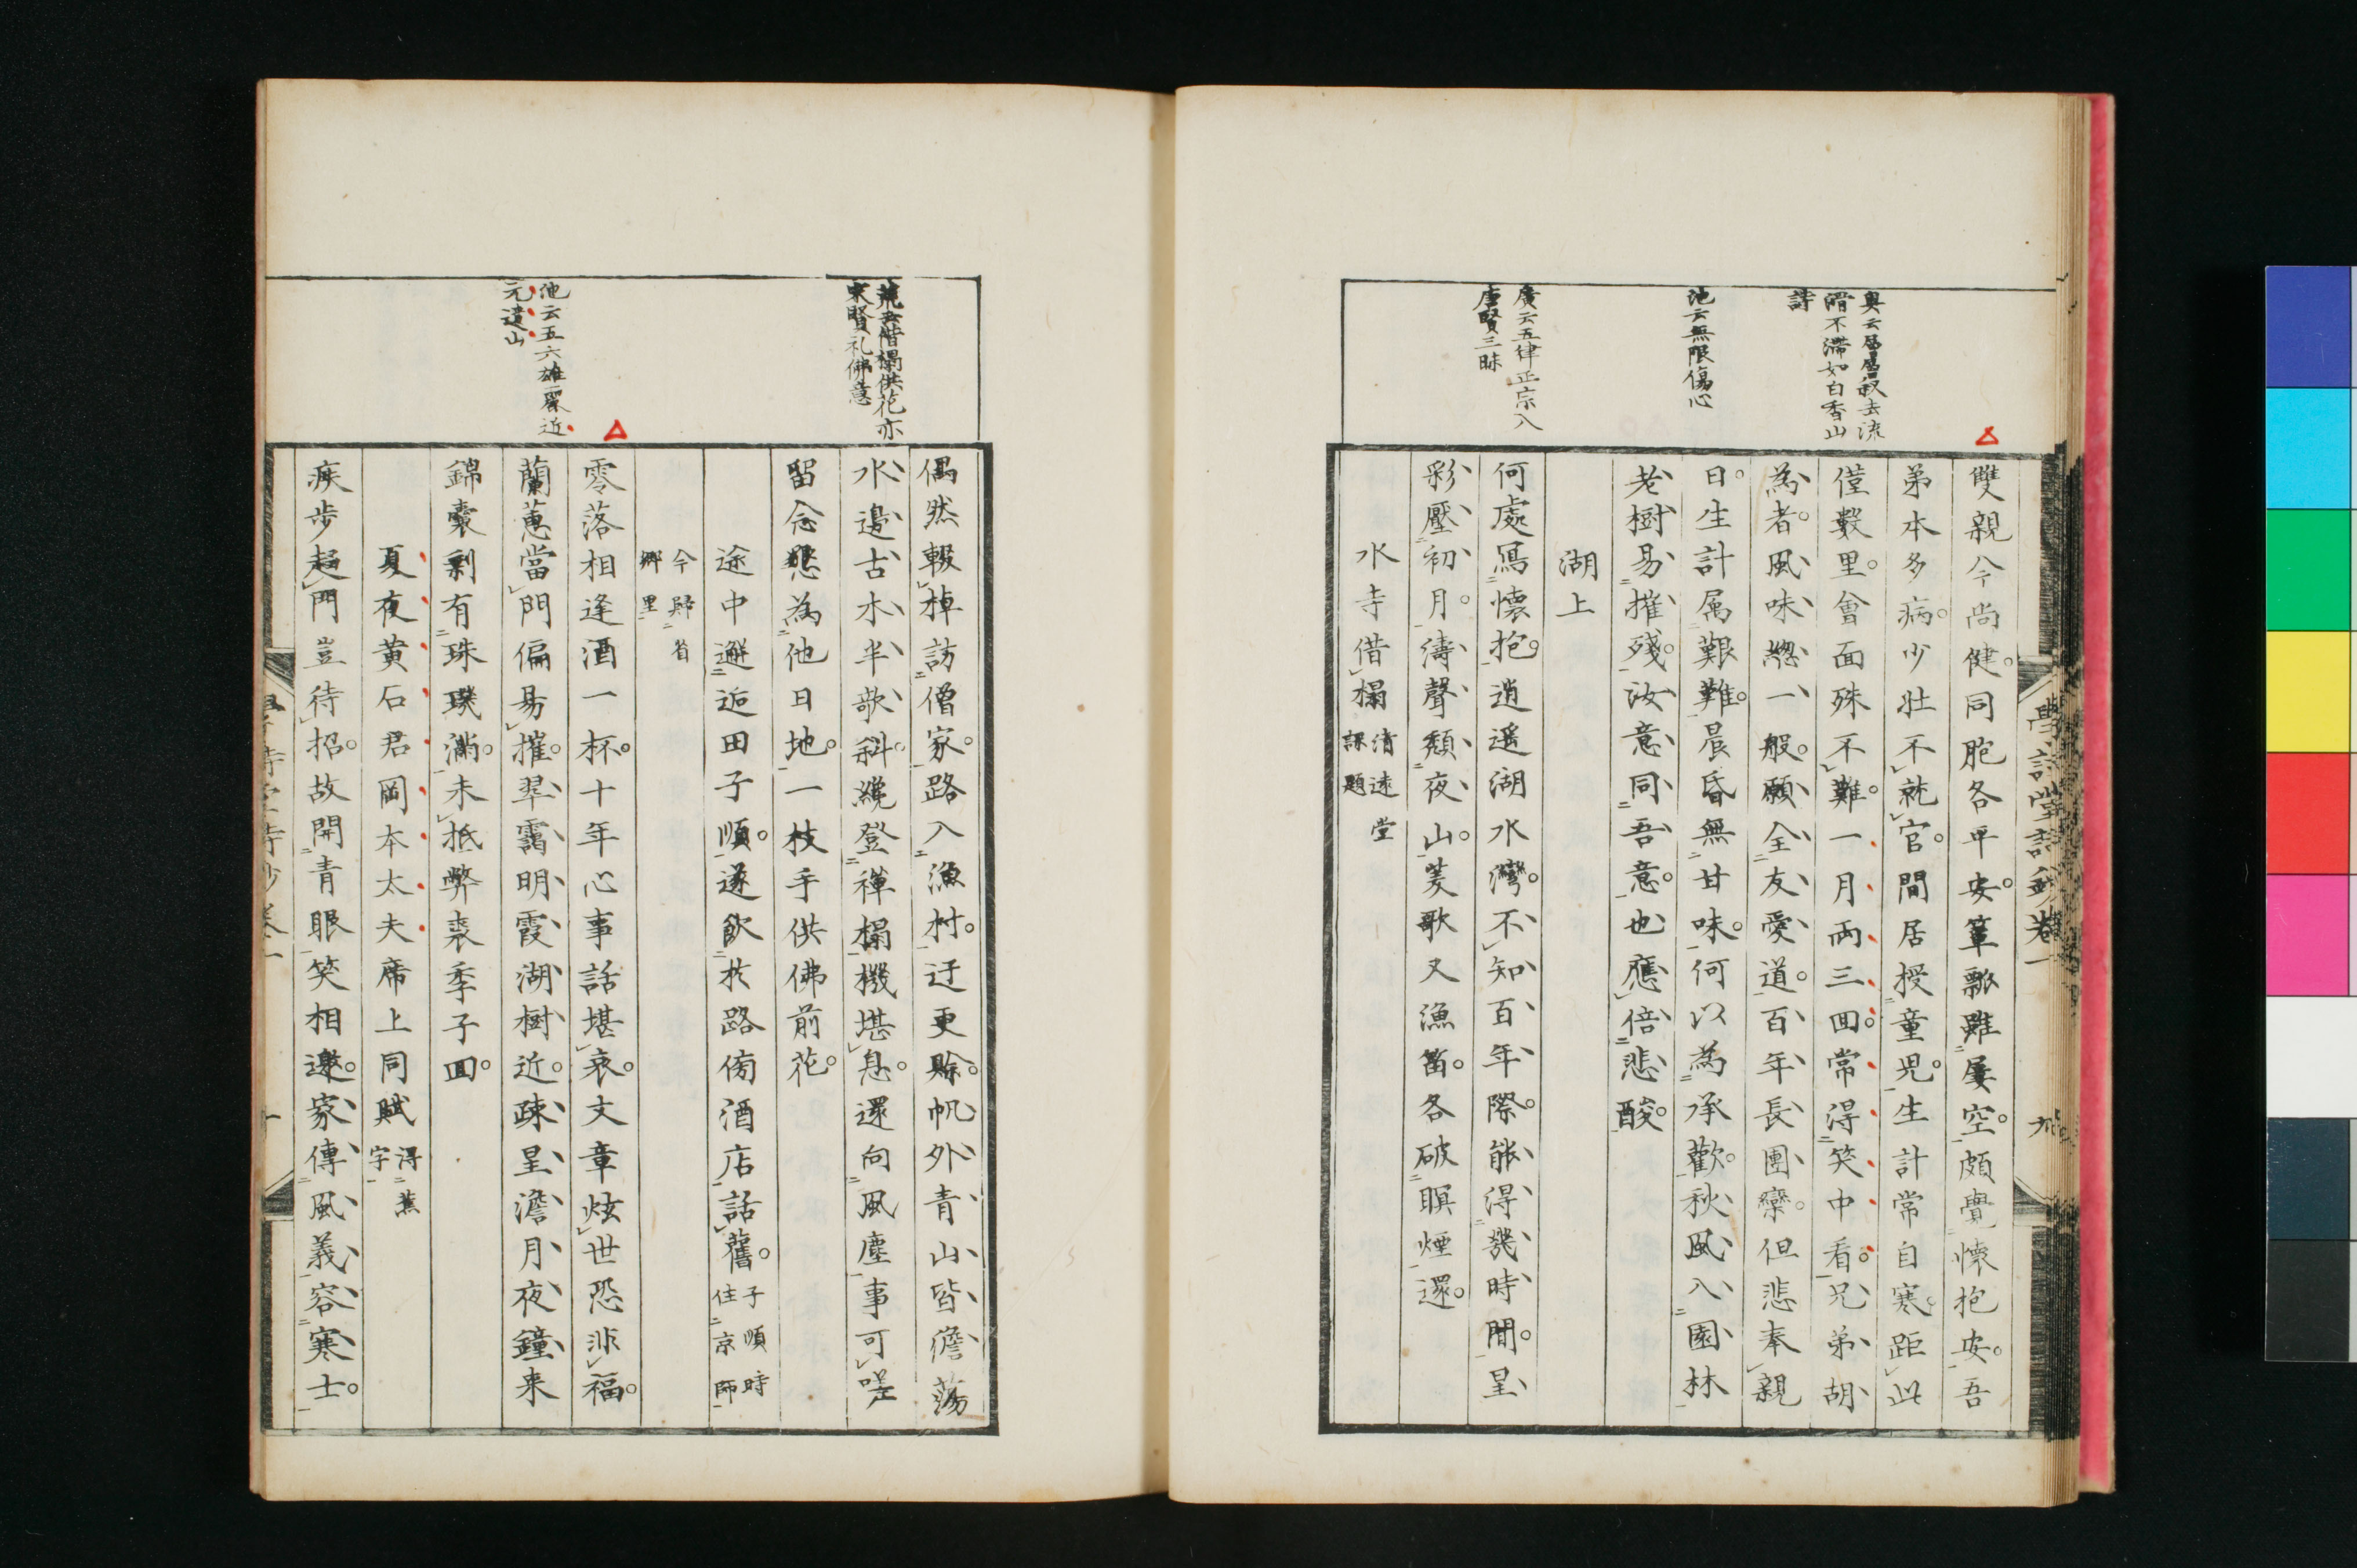 奥云層層叙去流
滑不滯如白香山
詩
池云無限傷心
廣云五律正宗入
唐賢三昧
雙親今尚健。同胞各平安。簞瓢雖屢空。頗覺懷抱安。吾
弟本多病。少壯不就官。間居授童兒。生計常自寒。距此
僅數里。會面殊不難。一月兩三回。常得笑中看。兄弟胡
為者。風味總一般。願全友愛道。百年長團欒。但悲奉親
日。生計属艱難。晨昏無甘味。何以為承歡。秋風入園林
老樹易摧殘。汝意同吾意。也應倍悲酸。
湖上
何處寫懷抱。逍遥湖水灣。不知百年際。能得幾時間。星
彩壓初月。濤聲頽夜山。菱歌又漁笛。各破暝煙還。
水寺借榻 清遠堂
課題
九
荒云借榻供花亦
宋賢礼佛意
池云五六雄麗近
元遺山
偶然輟棹訪僧家。路入漁村。迂更賒。帆外青山皆澹蕩
水邊古木半欹斜。纔登禪榻機堪息。還向風塵事可嗟
留念慇為他日地。一枝手供佛前花。
途中邂逅田子順。遂飲於路傍酒店話舊。子順時
住京師
今歸省
郷里
零落相逢酒一杯。十年心事話堪哀。文章炫世恐非福。
蘭蕙當門偏易摧。翠靄明霞湖樹近。疎星澹月夜鐘来
錦囊剩有珠璣滿。未抵弊裘季子回。
夏夜黄石君岡本太夫席上同賦 得蕉
字
疾歩趨門豈待招。故開青眼笑相邀。家傳風義容寒士。